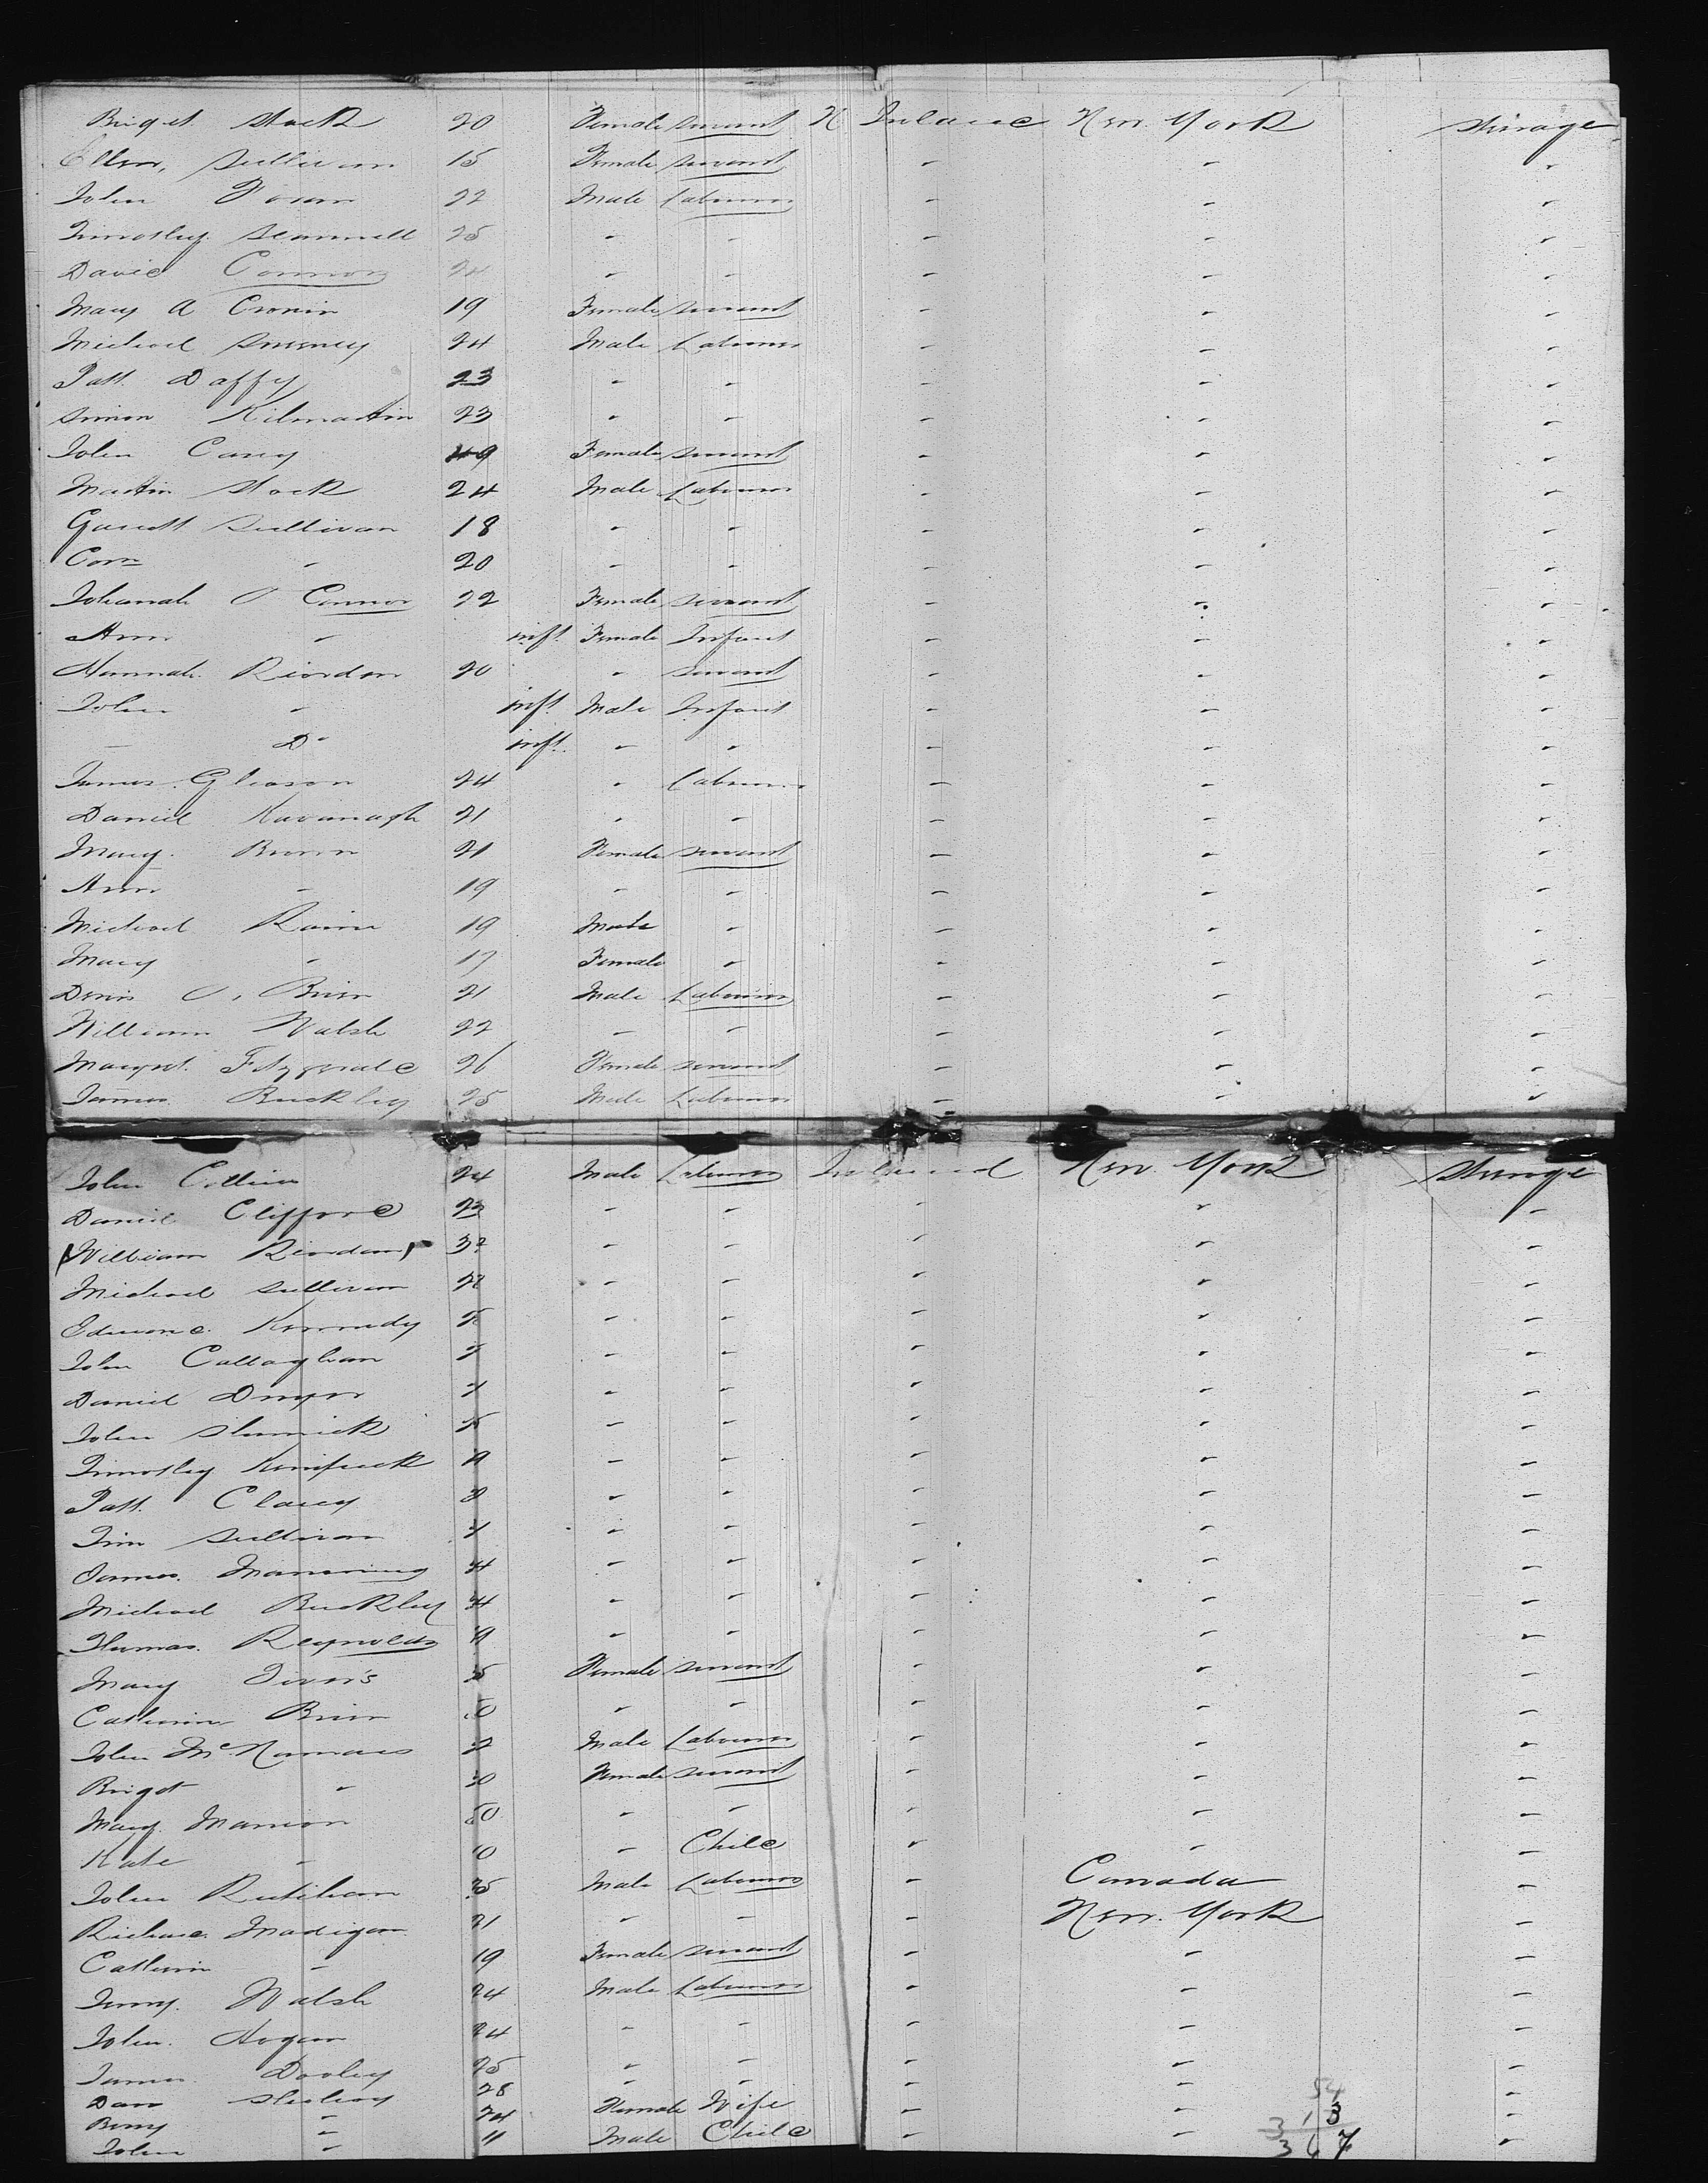 Briget Stack 20 Female Servant Ireland New York Steerage
Ellen Sullivan 15 Female Servant - - -
John Foran 22 Male Labourer - - -
Timothy Scannell 25 - - - - -
David Connors 24 - - - - -
Mary A Cronin 19 Female Servant - - -
Michael Sweeney 24 Male Labourer - - -
Patt. Daffy 23 - - - - -
Simon Kilmartin 23 - - - - -
John Casey Female Servant - - -
Martin Stack 24 Male Labourer - - -
Garrett Sullivan 18 - - - - -
Corn - 20 - - - - -
Johanah O Connor 22 Female Servant - - -
Ann - inft. Female Infant - - -
Hannah Riordan 20 - Servant - - -
John - inft Male Infant - - -
- Do inft. - - - - -
James Gleason 24 - Labourer - - -
Daniel Kavanagh 21 - - - - -
Mary Brown 21 Female Servant - - -
Ann - 19 - - - - -
Michael 19 Male - - - -
Mary - 17 Female - - - -
Denis O, Brien 21 Male Labourer - - -
William Walsh 22 - - - - -
Margret Fitzgerald 26 Female Servant - - -
James Buckley 25 Male Labourer - - -
John Collins 24 Male Labourer Ireland New York Steerage
Daniel Clifford 23 - - - - -
William Riordan 32 - - - - -
Michael Sullivan - - - - -
Edmond Kennedy - - - - -
John Callaghan - - - - -
Daniel Dwyer - - - - -
John - - - - -
Timothy - - - - -
Patt. Clancy - - - - -
Tim Sullivan - - - - -
James Manning - - - - -
Michael Buckley - - - - -
Thomas Reynolds - - - - -
Mary Female Servant - - -
Catherine Brien - - - - -
John McNamara Male Labourer - - -
Briget - Female Servant - - -
Mary Mannion - - - - -
Kate - - Child - - -
John Male Labourer - Canada -
Richard Madigan 21 - - - New York -
Catherine - 19 Female Servant - - -
Walsh 24 Male Labourer - - -
John Hogan 24 - - - - -
James Dooley 25 - - - - -
Dan Sheehy 28 - - - - -
- 24 Female Wife - - -
John - 11 Male Child - - -
54
313
367